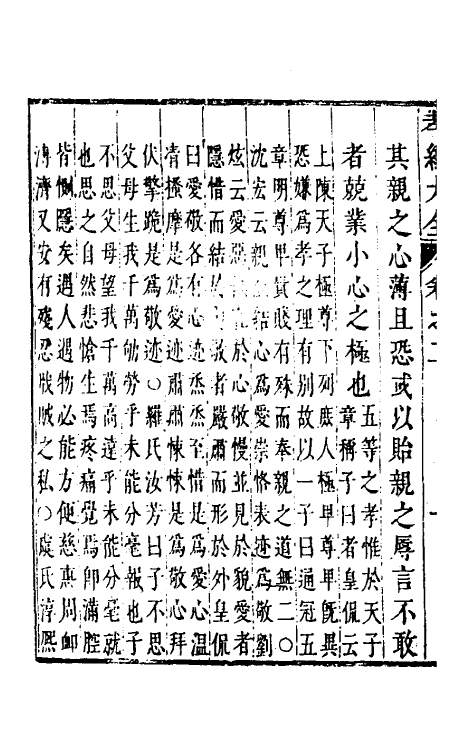 孝經大全 卷之二
其親之心薄且恐或以貽親之辱言不敢
者兢業小心之極也
五等之孝惟於天子
章稱子曰者皇侃云
上陳天子極尊下列庶人極卑尊卑既異
恐嫌爲孝之理有别故以一子曰通冠五
章明尊卑貴賤有殊而奉親之道無二○
沈宏云親至結心爲愛崇恪表迹爲敬劉
炫云愛惡俱在於心敬慢並見於貌愛者
隱惜而結於内敬者嚴肅而形於外皇侃
曰愛敬各有心迹烝烝至惜是爲愛心溫
凊搔摩是爲愛迹肅肅悚悚是爲敬心拜
伏擎跪是爲敬迹○羅氏汝芳曰子不思
父母生我千萬劬勞乎未能分毫報也子
不思父母望我千萬高遠乎未能分毫就
也思之自然悲愴生焉疼痛覺焉卽滿腔
皆惻隱矣遇人遇物必能方便慈惠周卹
溥濟又安有殘忍戕賊之私○虞氏淳熙